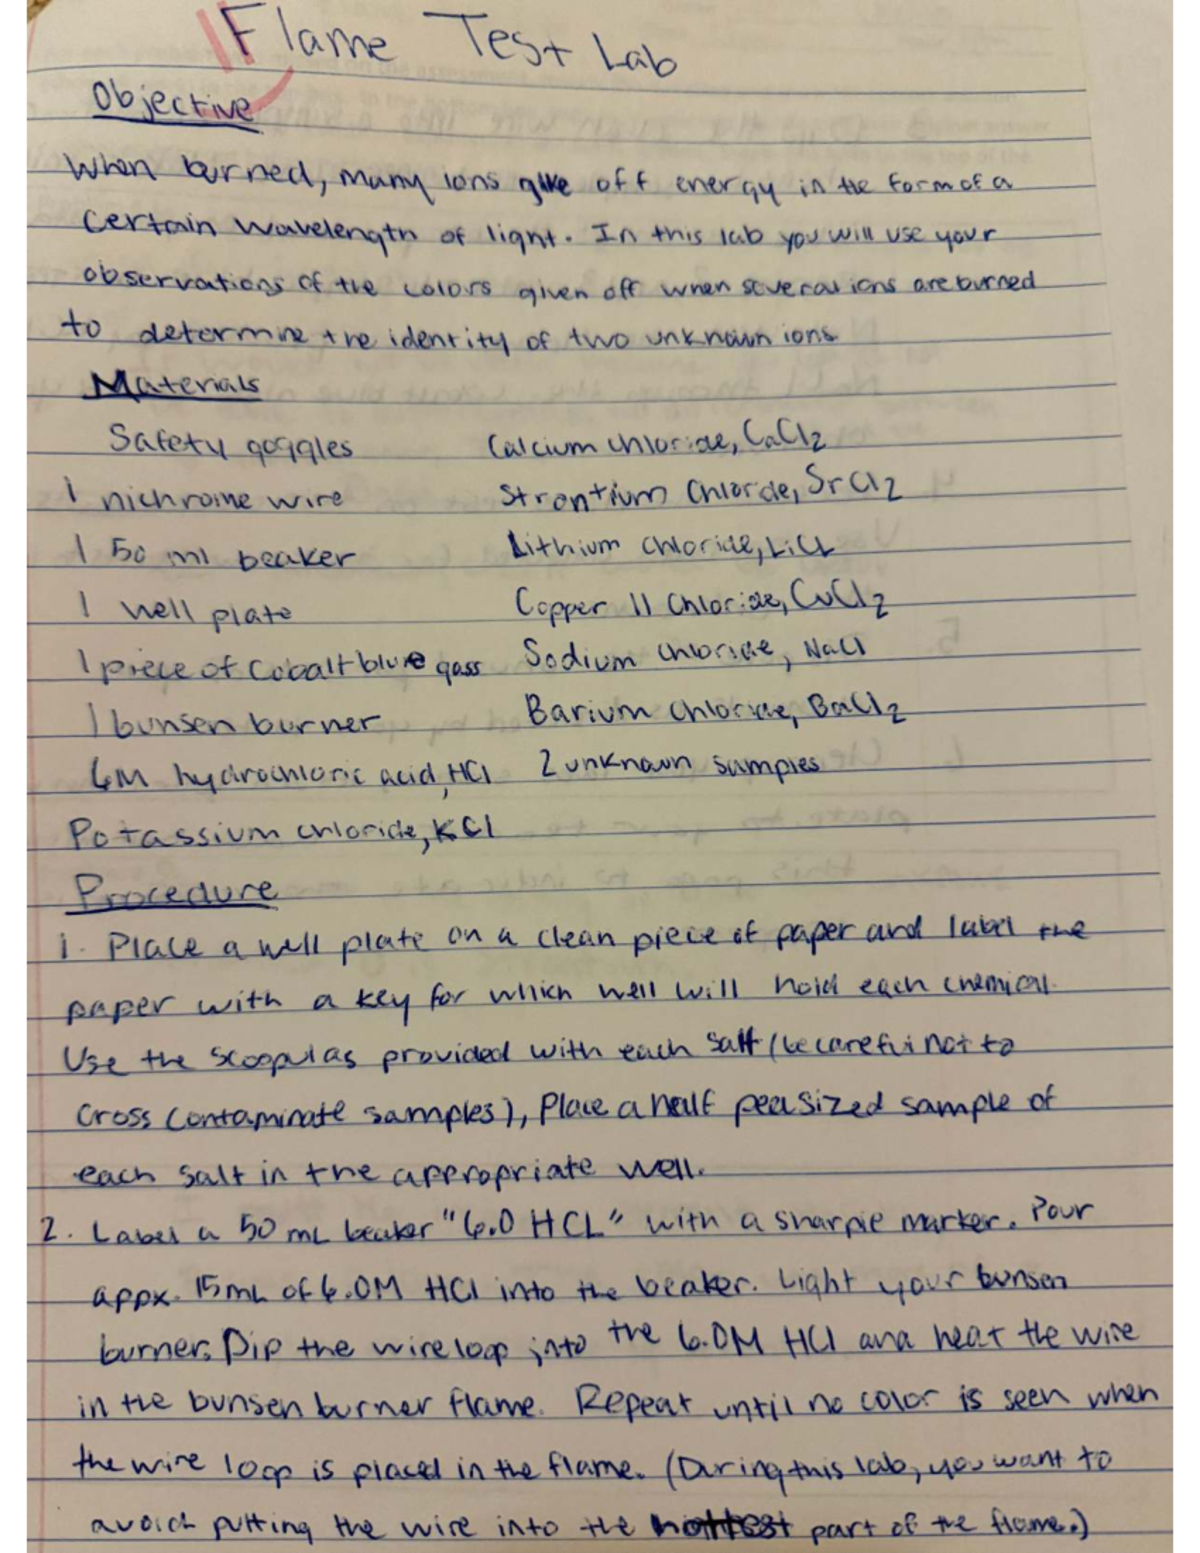 Flame Test Lab
Objective
When burned, many ions give off energy in the form of a
certain wavelength of light. In this lab you will use your
observations of the colors given off when several ions are burned
to determine the identity of two unknown ions
Materials
Safety goggles Calcium chloride, CaCl2
1 nichrome wire Strontium Chlorde, SrCl2
1 50 ml beaker Lithium chloride, LiCl
1 well plate Copper II Chloride, CuCl2
1 piece of Cobalt blue gass Sodium chloride, NaCl
1 bunsen burner Barium chloride, BaCl2
6M hydrochloric acid, HCl 2 unknown samples
Potassium chloride, KCl
Procedure
1. Place a well plate on a clean piece of paper and label the
paper with a key for which well will hold each chemical.
Use the scoopulas provided with each salt (be careful not to
cross contaminate samples), Place a half pea sized sample of
each salt in the appropriate well.
2. Label a 50 mL beaker "6.0 HCL" with a sharpie marker. Pour
appx. 15mL of 6.0M HCl into the beaker. Light your bunsen
burner. Dip the wire loop into the 6.0M HCl and heat the wire
in the bunsen burner flame. Repeat until no color is seen when
the wire loop is placed in the flame. (During this lab, you want to
avoid putting the wire into the hottest part of the flame.)